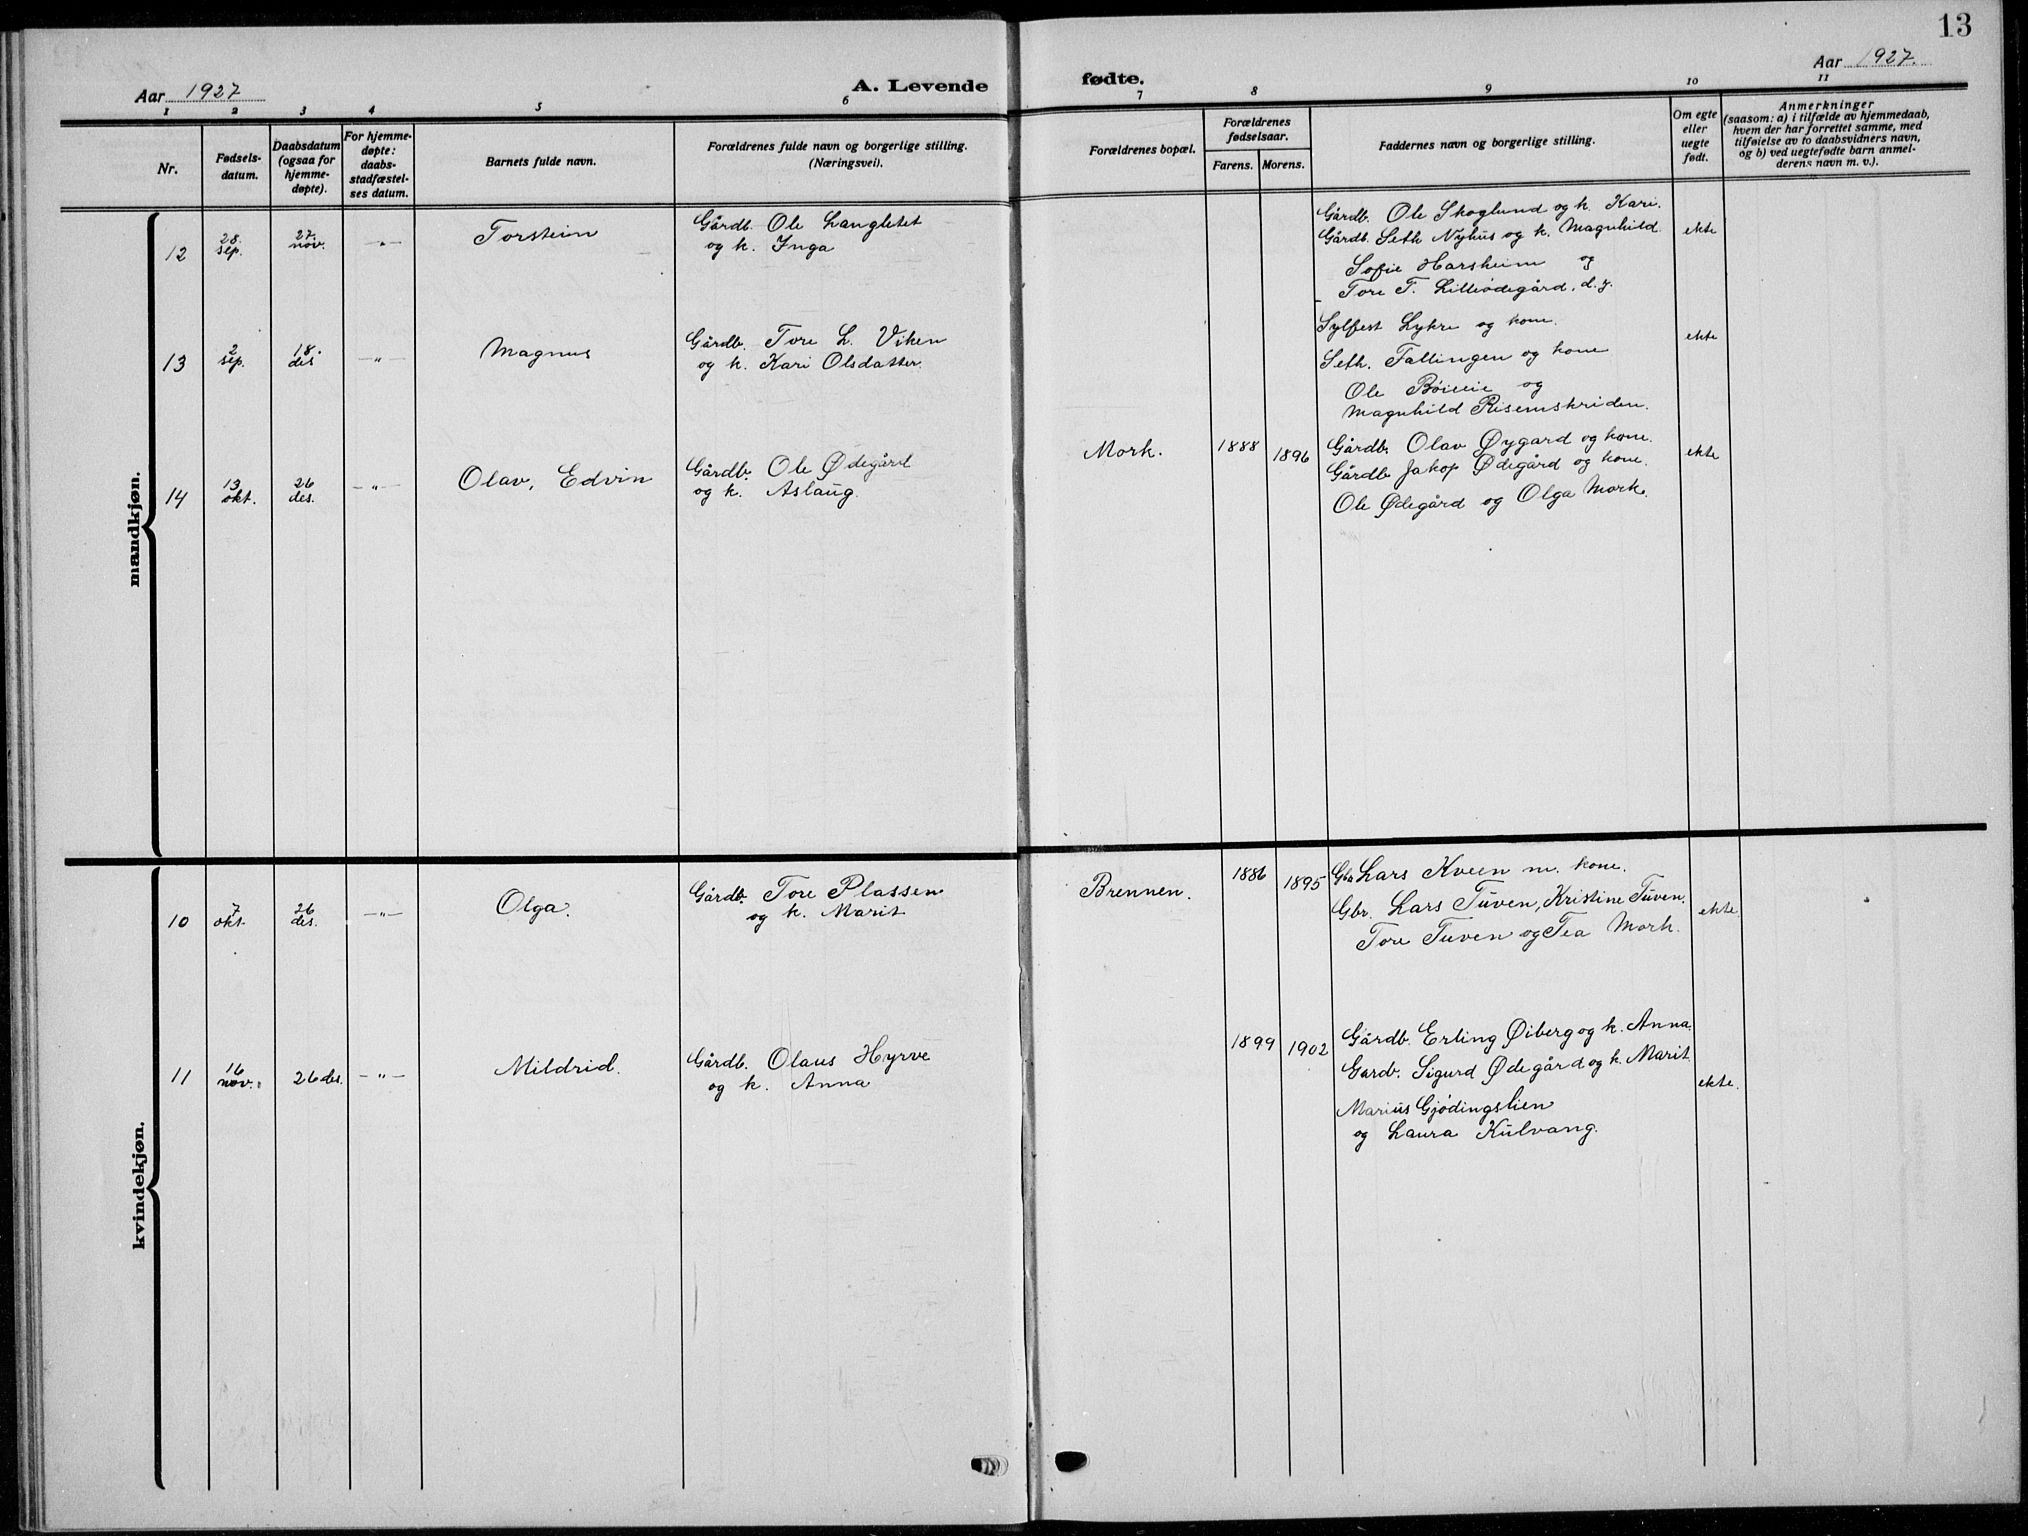 13
Aar 1927
A. Levende
fødte.
Aar 1927.
1 2 3 4 5 6 7 8 9 10 11
Nr.
Fødsels-
datum.
Daabsdatum
(ogsaa for
hjemme-
døpte).
For hjemme-
døpte:
daabs-
stadfæstel-
ses datum.
Barnets fulde navn.
Forældrenes fulde navn og borgerlige stilling.
(Næringsvei).
Forældrenes bopæl.
Forældrenes
fødselsaar.
Farens. Morens.
Faddernes navn og borgerlige stilling.
Om egte
eller
uegte
født.
Anmerkninger
(saasom: a) i tilfælde av hjemmedaab,
hvem der har forrettet samme, med
tilføielse av to daabsvidners navn,
og b) ved uegtefødte barn anmel-
derens navn m. v.).
mandkjøn.
12
28.
sep.
27.
nov.
—"—
Torsteim
Gårdb. Ole Langletet
og k. Inga
Gårdb. Ole Skoglund og k. Kari.
Gårdb. Seth Nyhus og k. Magnhild.
Sofie Harsheim og
Tore T. Lilleødegård, d.y.
ekte
13
2
sep.
18.
des
—"—
Magnus
Gårdb. Tore L. Viken
og k. Kari Olsdatter.
Sylfest Lykre og kone.
Seth. Tallingen og kone
Ole Bøieeie og
Magnhild Risemskriden.
ekte
14
13
okt.
26
des.
—"—
Olav, Edvin
Gårdb. Ole Ødegård
og k. Aslaug.
Mork.
1888
1896
Gårdb. Olav Øygard og kone.
Gårdb Jakop Ødegård og kone.
Ole Ødegård og Olga Mork.
ekte
kvindekjøn.
10
7
okt.
26
des.
—"—
Olga.
Gårdb. Tore Plassen
og k. Marit
Brennen.
1886
1895
Gbr Lars Kveen m. kone.
Gbr. Lars Tuven, Kristine Tuven.
Tore Tuven og Tea Mork.
ekte.
11
16
nov.
26 des.
—"—
Mildrid.
Gårdb. Olaus Hyrve
og k. Anna
1899
1902
Gårdb. Erling Øiberg og k. Anna.
Gardb. Sigurd Ødegård og k. Marit.
Marius Gjødingslien
og Laura Kulvang.
ekte.